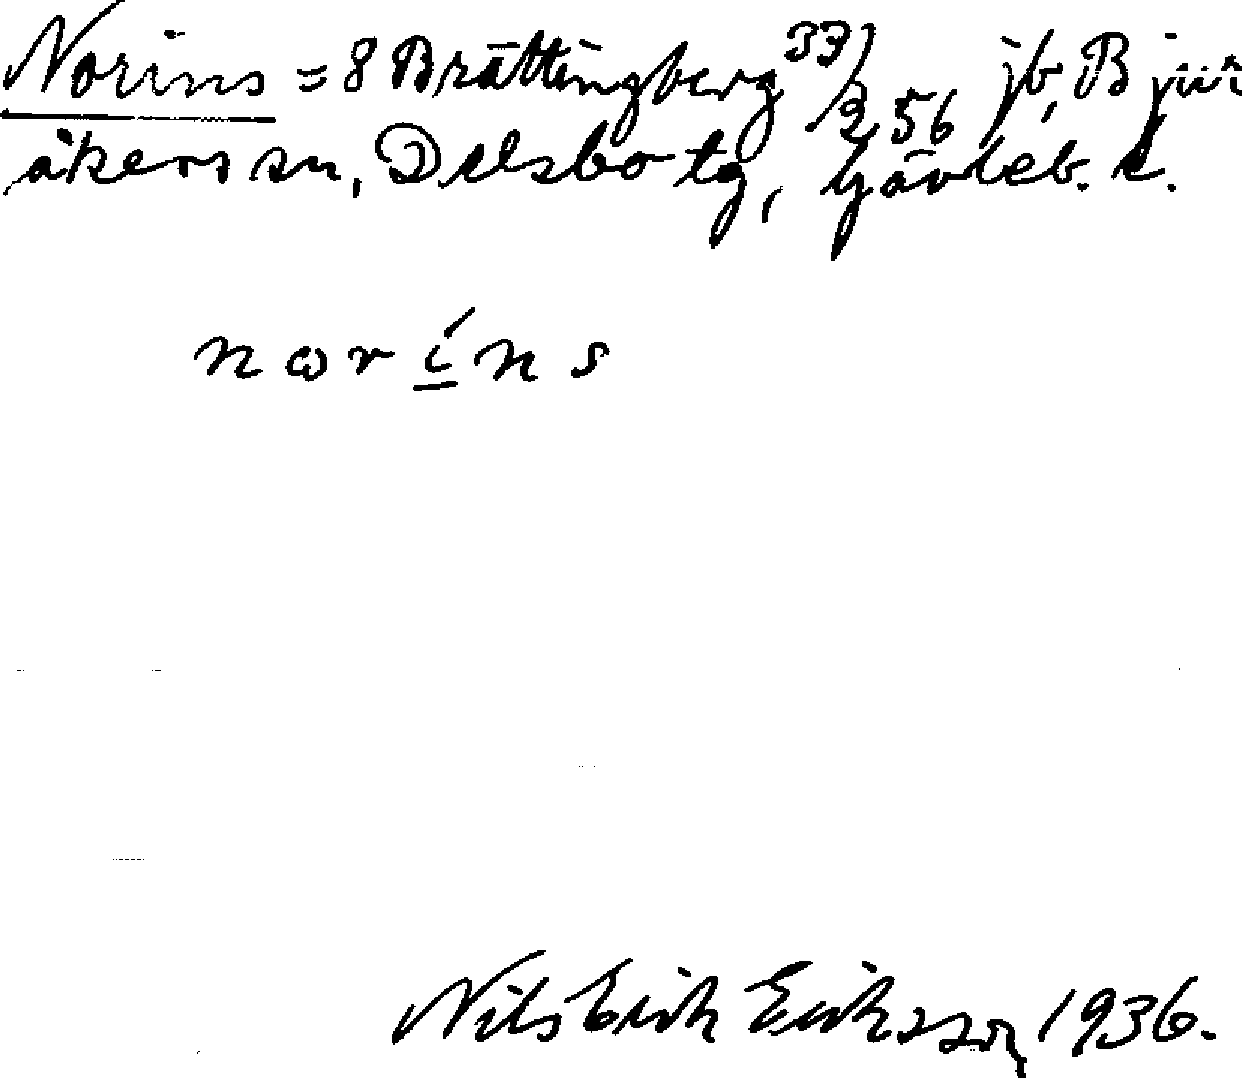 Norins = 8 Brättingberg 33/256 jb, Bjur
åkers sn, Delsbo tg, Gävleb. l.
n ω r í n s
Nils Erik Eriksson 1936.